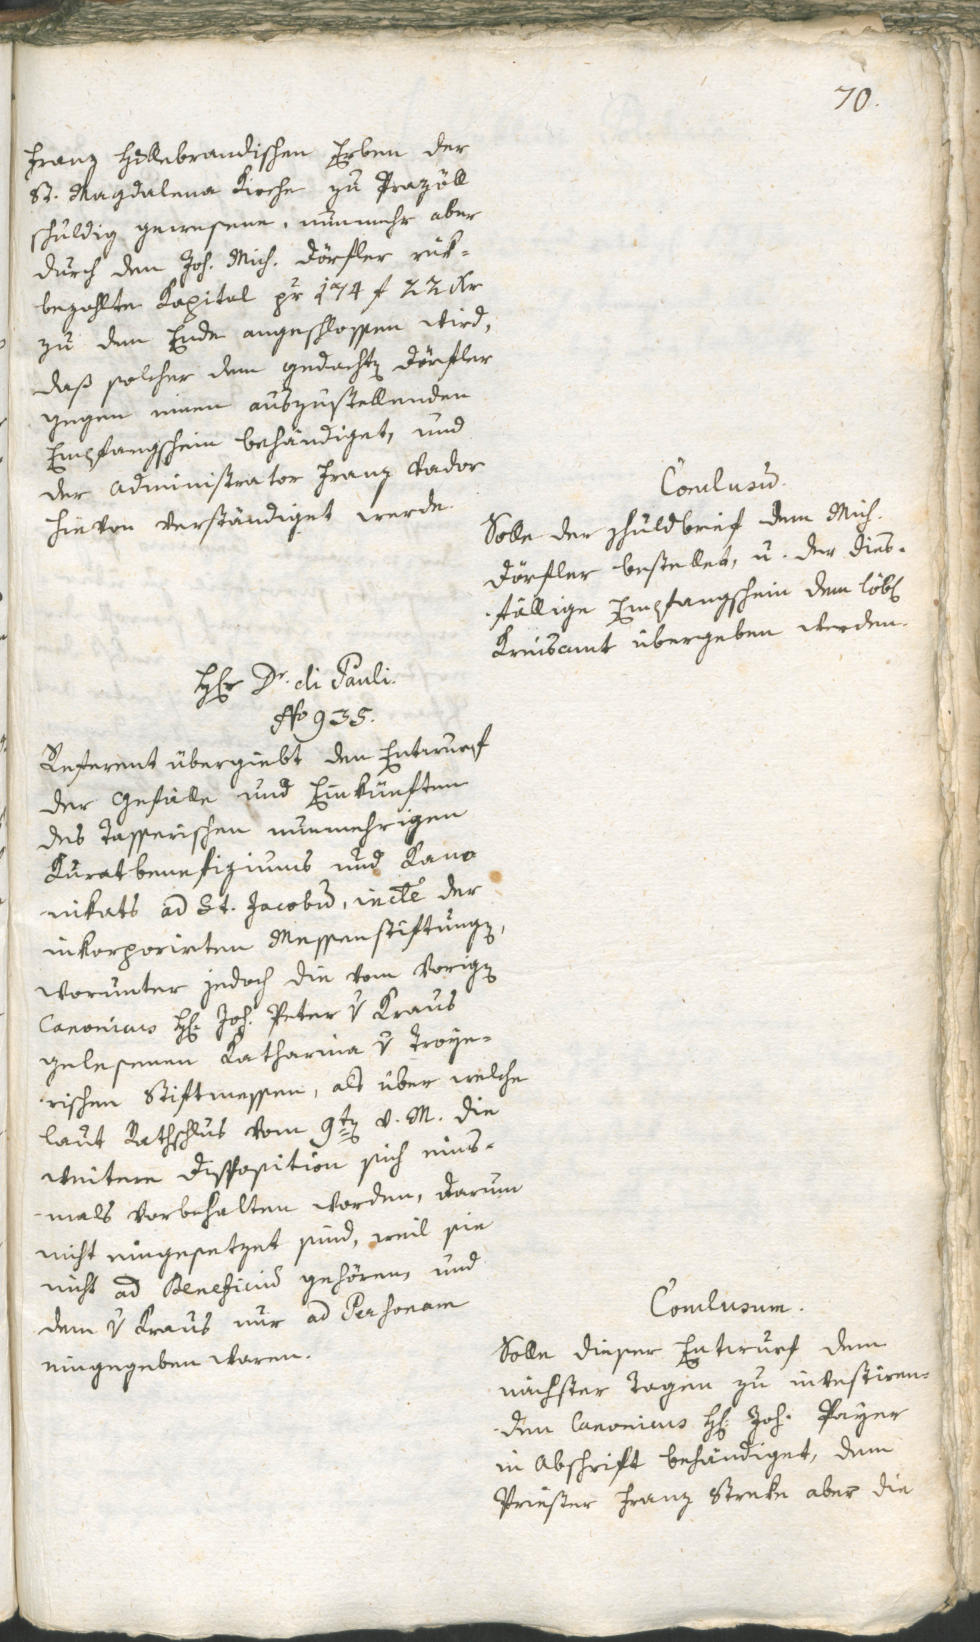 70.
Franz Hillebrandischen Erben der
St. Magdalena Kirche zu Prazöll
schuldig gewesene, nunmehr aber
durch den Joh. Mich. Dörfler rük-
bezahlte Kapital pr 174 f 22 Kr
zu dem Ende angeschlossen wird,
daß solcher dem gedachten Dörfler
gegen einen auszustellenden
Empfangschein behändiget, und
der Administrator Franz Kador
hievon verständiget werde.
Conclusum.
Solle der Schuldbrief dem Mich.
Dörfler bestellet, u. der dies-
fällige Empfangschein dem löbl
Kreisamt übergeben werden.
HEr Dr. di Pauli.
No 935.
Referent übergiebt den Entwurf
der Gefälle und Einkünften
des Tasserischen nunmehrigen
Kuratbenefiziums und Kano
nikats ad St. Jacobum, incle der
inkorporirten Messenstiftungen,
worunter jedoch die vom vorigen
Canonicus H. Joh. Peter v Kraus
gelesenen Katharina v Troye-
rischen Stiftmessen, als über welche
laut Rathschlus vom 9ten v. M. die
weitere Disposition sich eins-
mals vorbehalten worden, darum
nicht eingesetzet sind, weil sie
nicht ad Beneficium gehören, und
dem v Kraus nur ad Personam
eingegeben waren.
Conclusum.
Solle dieser Entwurf dem
nächster Tagen zu investiren-
den Canonicus H. Joh. Payer
in Abschrift behändiget, dem
Priester Franz Streke aber die